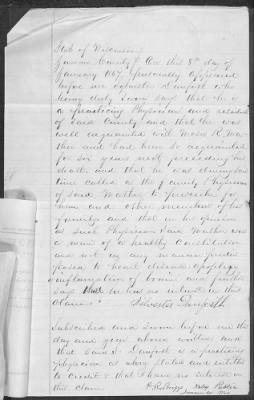 State of Wisconsin
County } On this 8th day of
January 1867, personally appeared
before me Sylvester Danforth who
being duly Sworn says that he is
a practicing Physician and resident
of said County and that he was
well acquainted with Moses R.
and had been so acquainted
for six years next preceeding his
death, and that he was during said
time called as the family Physician
of said to prescribe for
him and other members of his
family and that in his opinion
as such Physician Said
was a man of a healthy Constitution
and not in any manner predis-
posed to heart disease apoplexy
inflamation of brain and further
says that he has no interest in this
claim. Silvester Danforth
Subscribed and Sworn before me the
day and year above written and
that Said S. Danforth is a practicing
physician as above stated and entitled
to Credit & that I have no interest in
this claim